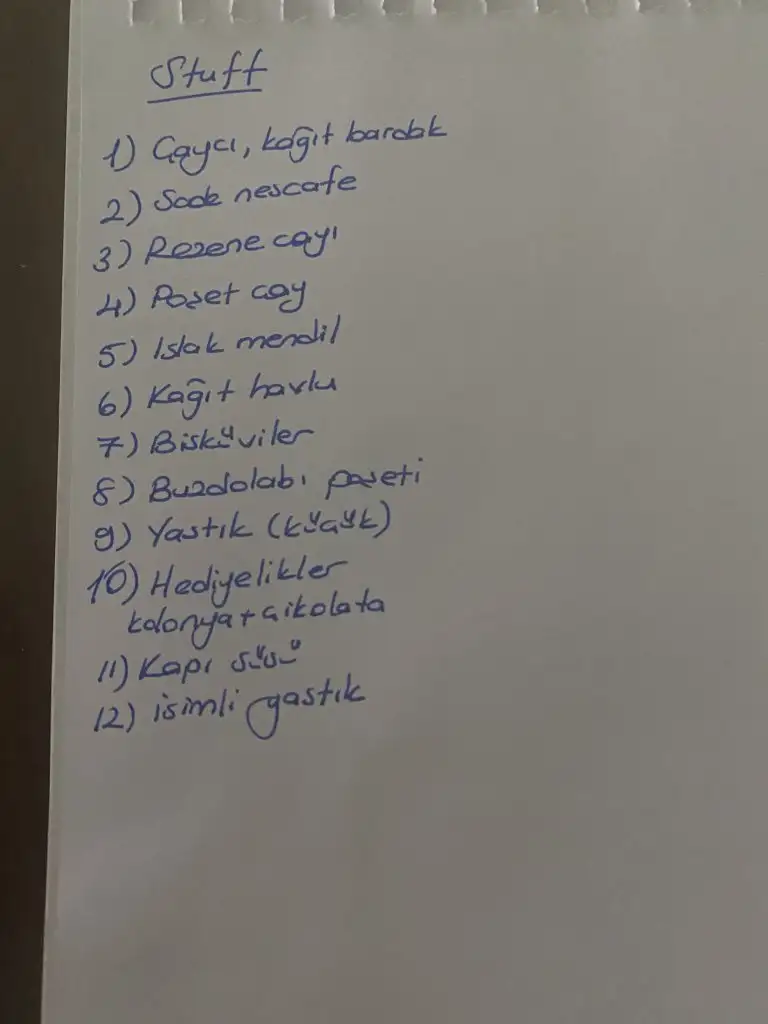 Stuff
1) Çaycı, kağıt bardak
2) Sade nescafe
3) Rezene çayı
4) Poşet çay
5) Islak mendil
6) Kağıt havlu
7) Bisküviler
8) Buzdolabı poşeti
9) Yastık (küçük)
10) Hediyelikler
kolonya + çikolata
11) Kapı süsü
12) isimli yastık